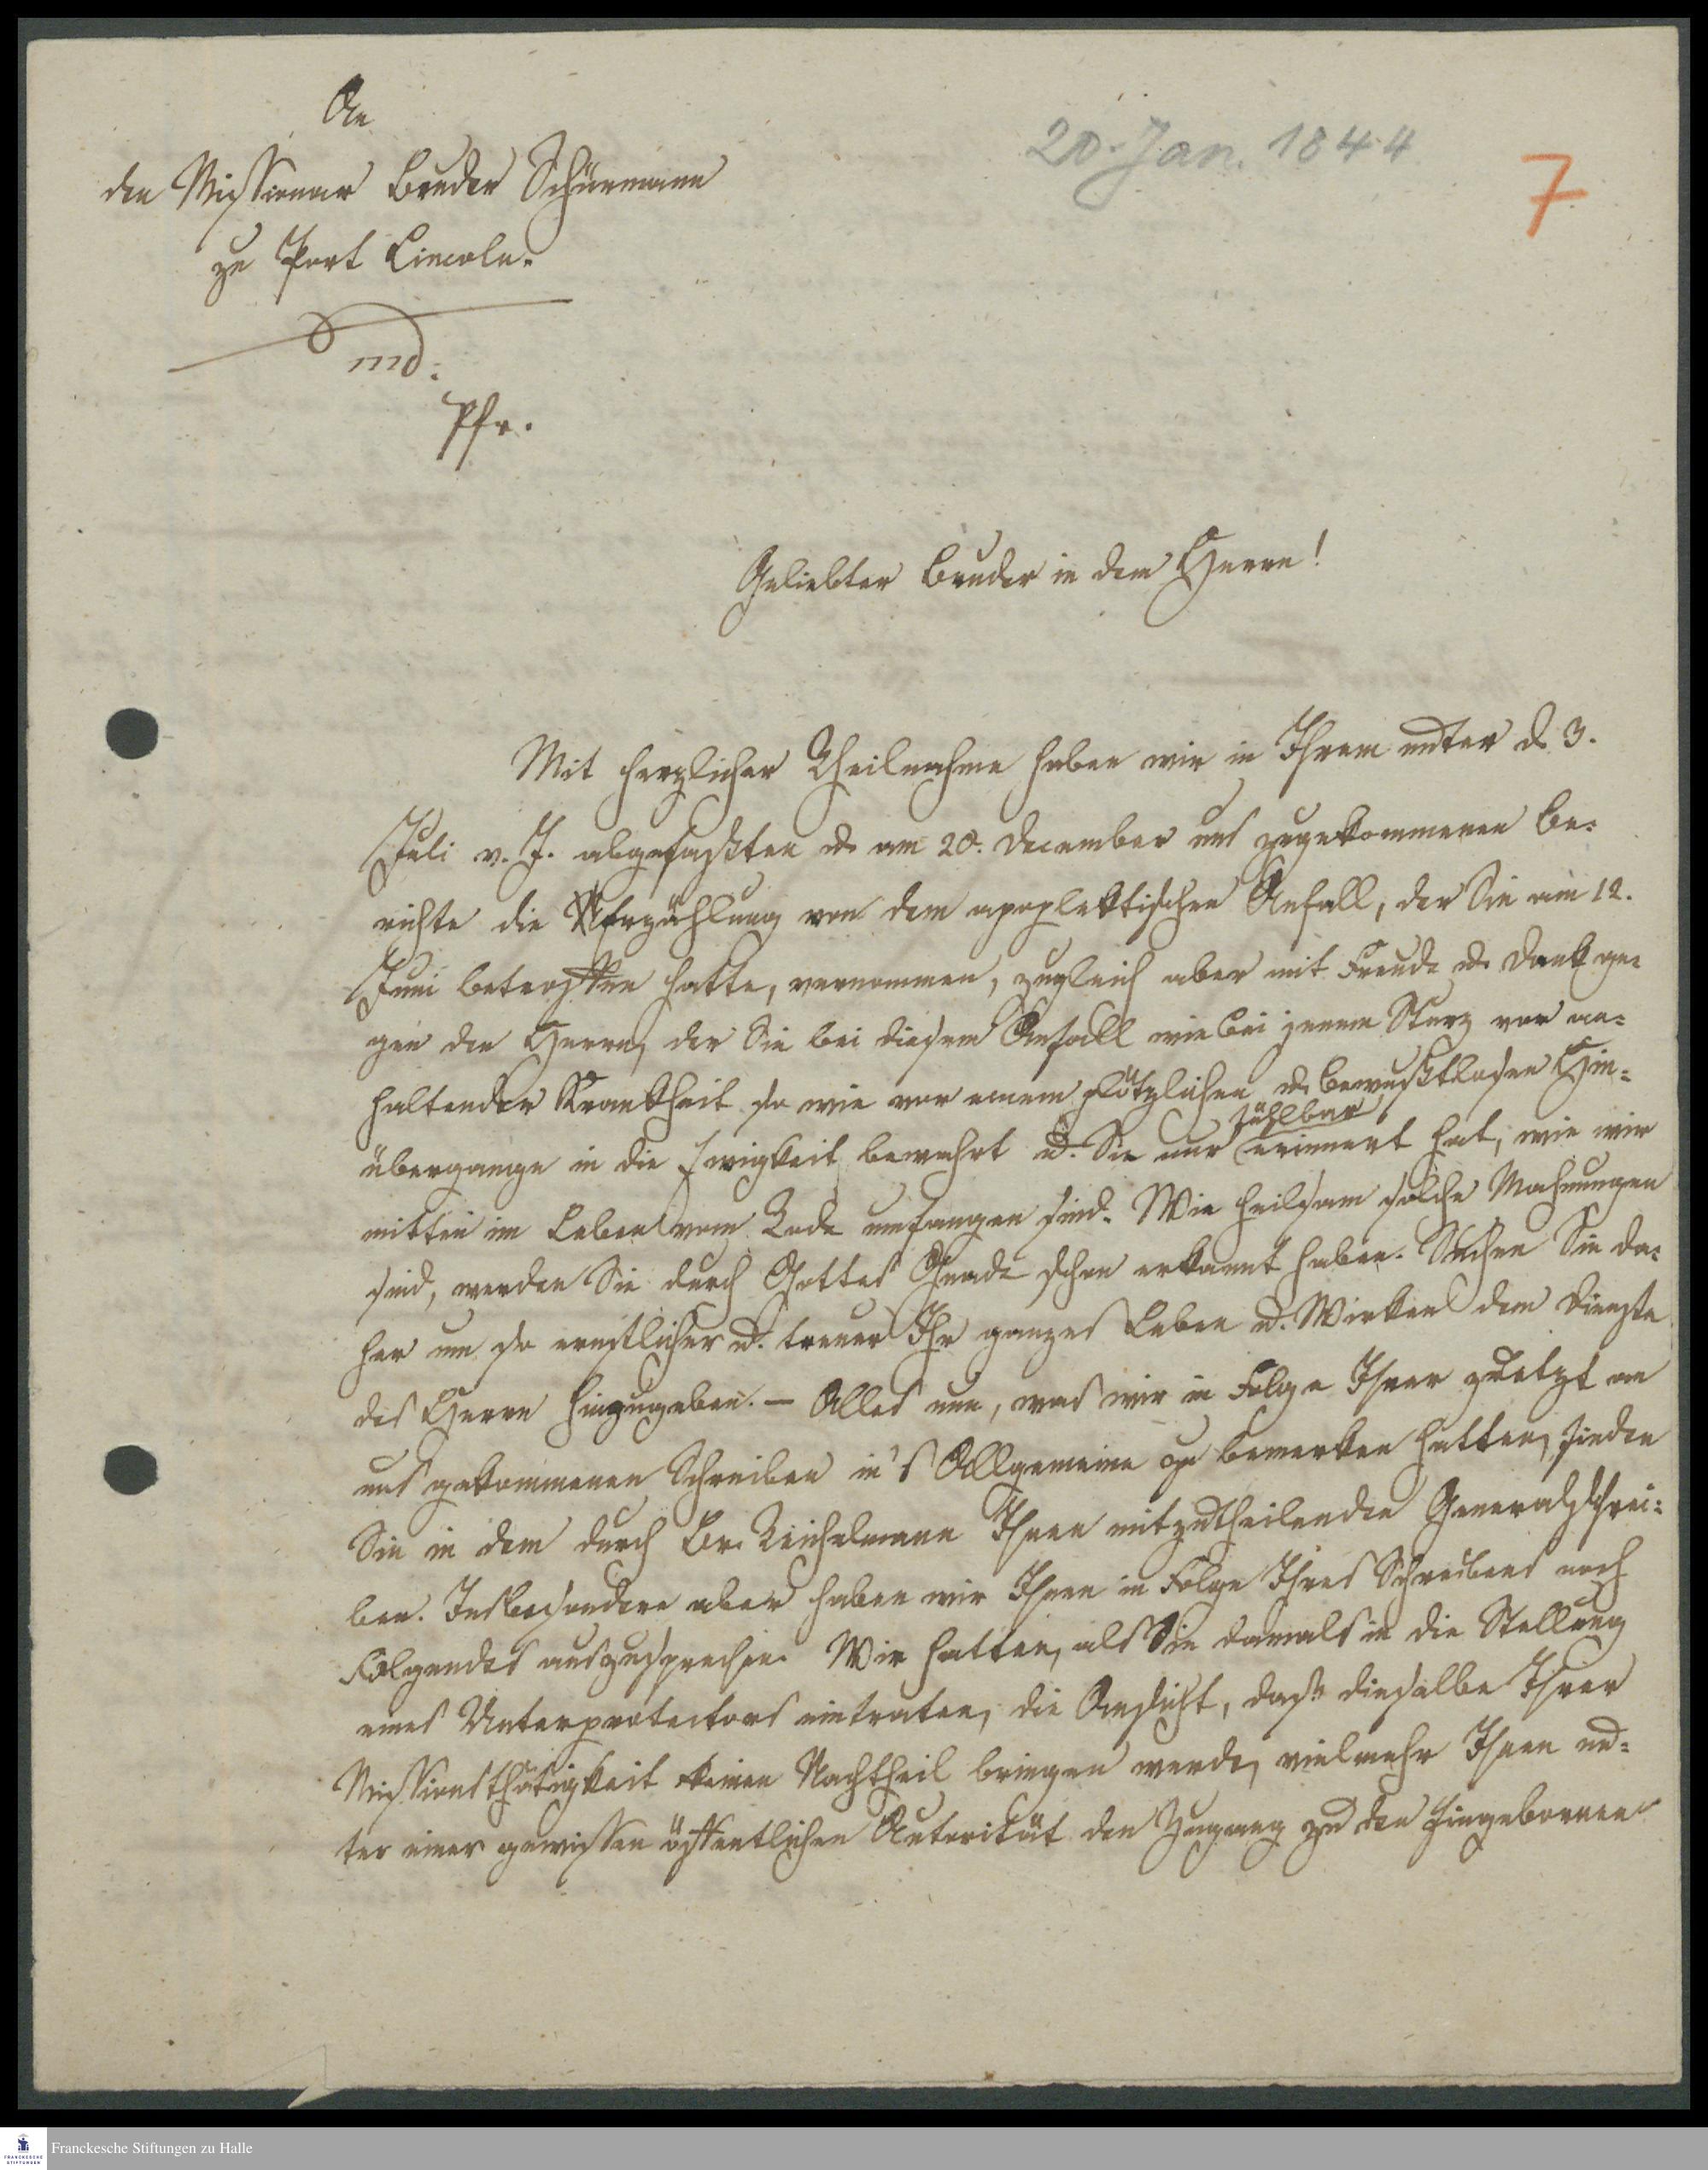 An
den Missionar Bruder Schürmann
zu Port Lincoln.
md.
Pfr.
20. Jan. 1844
7
Geliebter Bruder in dem Herrn!
Mit herzlicher Theilnahme haben wir in Ihrem unter d. 3.
Juli v. J. abgefaßten u. am 20. December uns zugekommenen Be-
richte die Erzählung von dem apoplektischen Anfall, der Sie am 12.
Juni betroffen hatte, vernommen, zugleich aber mit Freude u. Dank ge-
gen den Herrn, der Sie bei diesem Anfall wie bei jenem Sturz vor an-
haltender Krankheit so wie vor einem plötzlichen u. bewußtlosen Hin-
fühlbar
übergange in die Ewigkeit bewahrt u. Sie nur erinnert hat, wie wir
mitten im Leben vom Tode umfangen sind. Wie heilsam solche Mahnungen
sind, werden Sie durch Gottes Gnade schon erkannt haben. Suchen Sie da-
her um so ernstlicher u. treuer Ihr ganzes Leben u. Wirken dem Dienste
des Herrn hinzugeben. – Alles nun, was wir in Folge Ihrer zuletzt an
uns gekommenen Schreiben in's Allgemeine zu bemerken hatten, finden
Sie in dem durch Br. Teichelmann Ihnen mitzutheilenden Generalschrei-
ben. Insbesondere aber haben wir Ihnen in Folge Ihres Schreibens noch
Folgendes auszusprechen. Wir hatten, als Sie damals in die Stellung
eines Unterprotectors eintraten, die Ansicht, daß dieselbe Ihrer
Missionsthätigkeit keinen Nachtheil bringen werde, vielmehr Ihnen un-
ter einer gewissen öffentlichen Autorität den Zugang zu den Eingebornen
Franckesche Stiftungen zu Halle
FRANCKESCHE
STIFTUNGEN